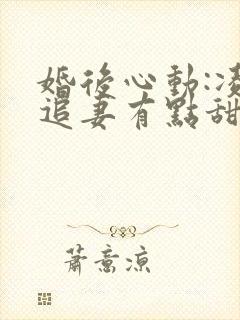 婚後心動:
追妻有點甜
蕭意涼